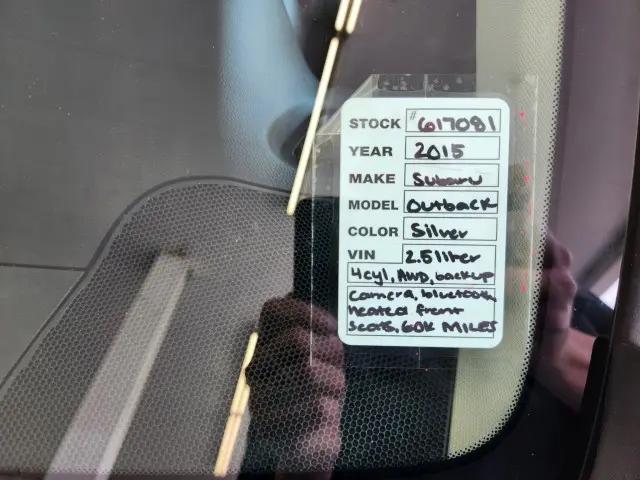 STOCK #617081
YEAR 2015
MAKE Subaru
MODEL Outback
COLOR Silver
VIN 2.5 liter
4cyl, AWD, backup
camera, bluetooth
heated front
seats, 60K MILES